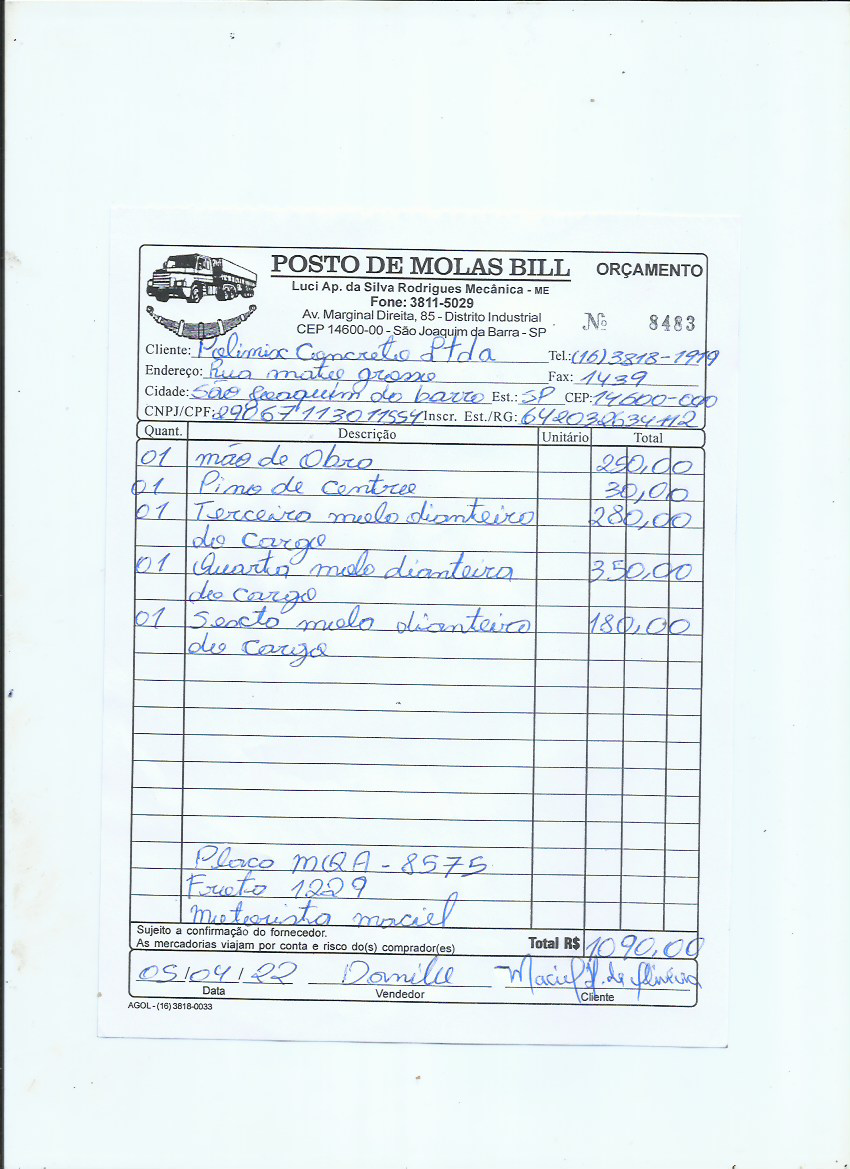 POSTO DE MOLAS BILL ORÇAMENTO
Luci Ap. da Silva Rodrigues Mecânica - ME
Fone: 3811-5029
Av. Marginal Direita, 85 - Distrito Industrial
CEP 14600-00 - São Joaquim da Barra - SP Nº 8483
Cliente: Polimix Concreto Ltda Tel.: (16) 3818-1919
Endereço: Rua mato grosso Fax: 1439
Cidade: São Joaquim da barra Est.: SP CEP: 14600-000
CNPJ/CPF: 29067113011554 Inscr. Est./RG: 642032634112
Quant. Descrição Unitário Total
01 mão de Obra 250,00
01 Pino de centro 30,00
01 Terceira mola dianteira 280,00
do cargo
01 Quarta mola dianteira 350,00
do cargo
01 Sexta mola dianteira 180,00
do cargo
Placa MQA - 8575
Frota 1229
Motorista maciel
Sujeito a confirmação do fornecedor.
As mercadorias viajam por conta e risco do(s) comprador(es) Total R$ 1090,00
05/04/22 Danilo Maciel J. de Oliveira
Data Vendedor Cliente
AGOL - (16) 3818-0033